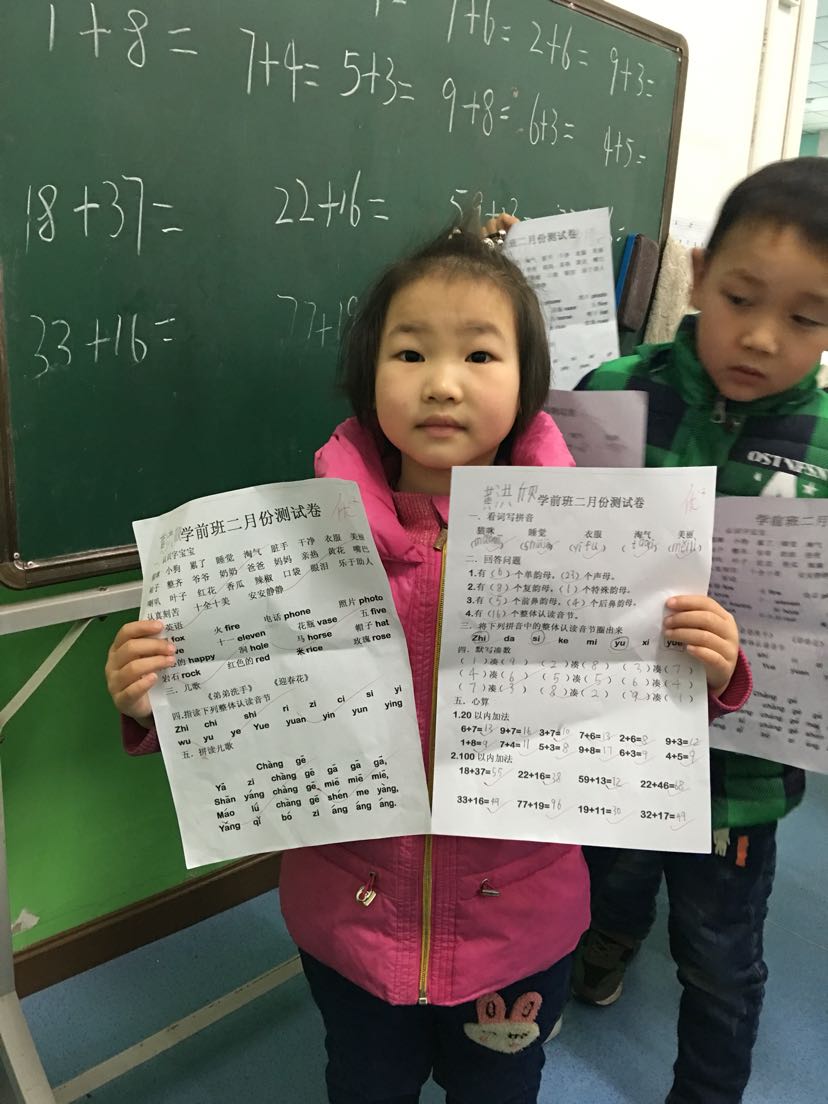 1+8=
7+4=
5+3=
7+6=
2+6=
9+3=
9+8=
6+3=
4+5=
18+37=
22+16=
33+16=
学前班二月份测试卷
小狗 累了 睡觉 淘气 脏手 干净 衣服 美丽
整齐 爷爷 奶奶 爸爸 妈妈 亲热 黄花 嘴巴
喇叭 叶子 红花 香瓜 辣椒 口袋 眼泪 乐于助人
认真刻苦 十全十美 安安静静
英语
fox 火 fire 电话 phone 照片 photo
十一 eleven 花瓶 vase 五 five
happy 洞 hole 马 horse 帽子 hat
岩石 rock 红色的 red 米 rice 玫瑰 rose
三、儿歌
《弟弟洗手》 《迎春花》
四.指读下列整体认读音节
Zhi chi shi ri zi ci si yi
wu yu ye Yue yuan yin yun ying
五、拼读儿歌
Chàng gē
Yā zi chàng gē gā gā gā,
Shān yáng chàng gē miē miē miē,
Máo lǘ chàng gē shén me yàng,
Yǎng qǐ bó zi áng áng áng.
学前班二月份测试卷
优
一、看词写拼音
猫咪 睡觉 衣服 淘气 美丽
二.回答问题
1.有(6)个单韵母,(23)个声母。
2.有(8)个复韵母,(1)个特殊韵母。
3.有(5)个前鼻韵母,(4)个后鼻韵母。
4.有(16)个整体认读音节。
三、将下列拼音中的整体认读音节圈出来
Zhi da si ke mi yu xi yue
四、默写凑数
(1)凑(9) (2)凑(8) (3)凑(7)
(4)凑(6) (5)凑(5) (6)凑(4)
(7)凑(3) (8)凑(2) (9)凑(1)
五、心算
1.20 以内加法
6+7=13 9+7=16 3+7=10 7+6=13 2+6=8 9+3=12
1+8=9 7+4=11 5+3=8 9+8=17 6+3=9 4+5=9
2.100 以内加法
18+37=55 22+16=38 59+13=72 22+46=68
33+16=49 77+19=96 19+11=30 32+17=49
二月份测试卷
学前班二月